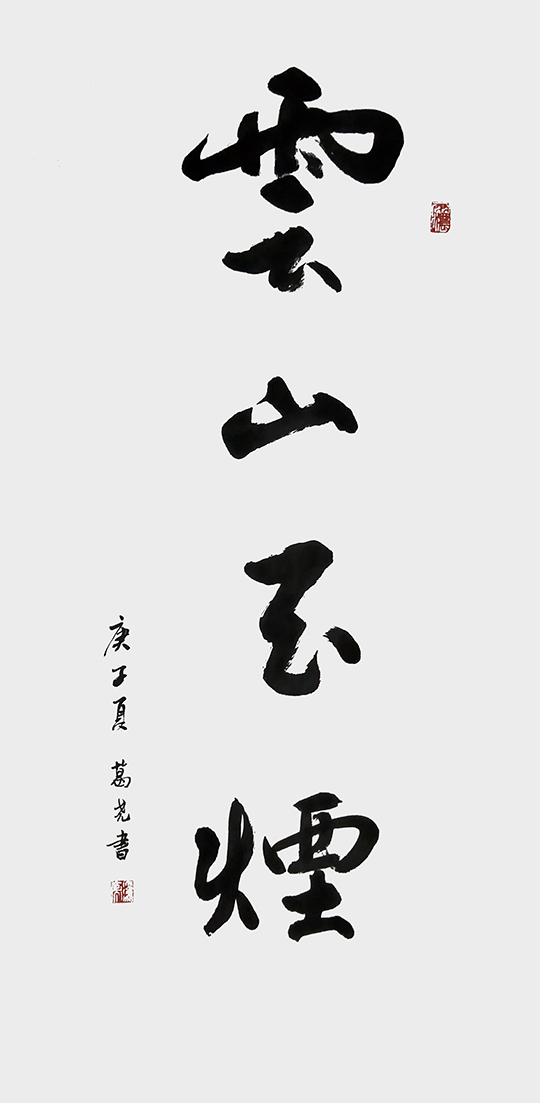 雲山煙
庚子夏 葛尧書